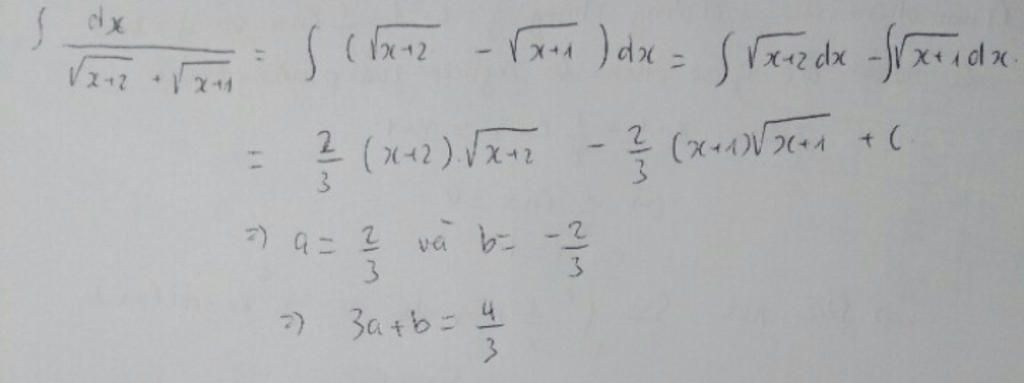 ∫ dx / (√(x+2) + √(x+1)) = ∫ (√(x+2) - √(x+1)) dx = ∫ √(x+2) dx - ∫ √(x+1) dx.
= 2/3 (x+2).√(x+2) - 2/3 (x+1)√(x+1) + C.
=> a = 2/3 và b = -2/3
=> 3a + b = 4/3